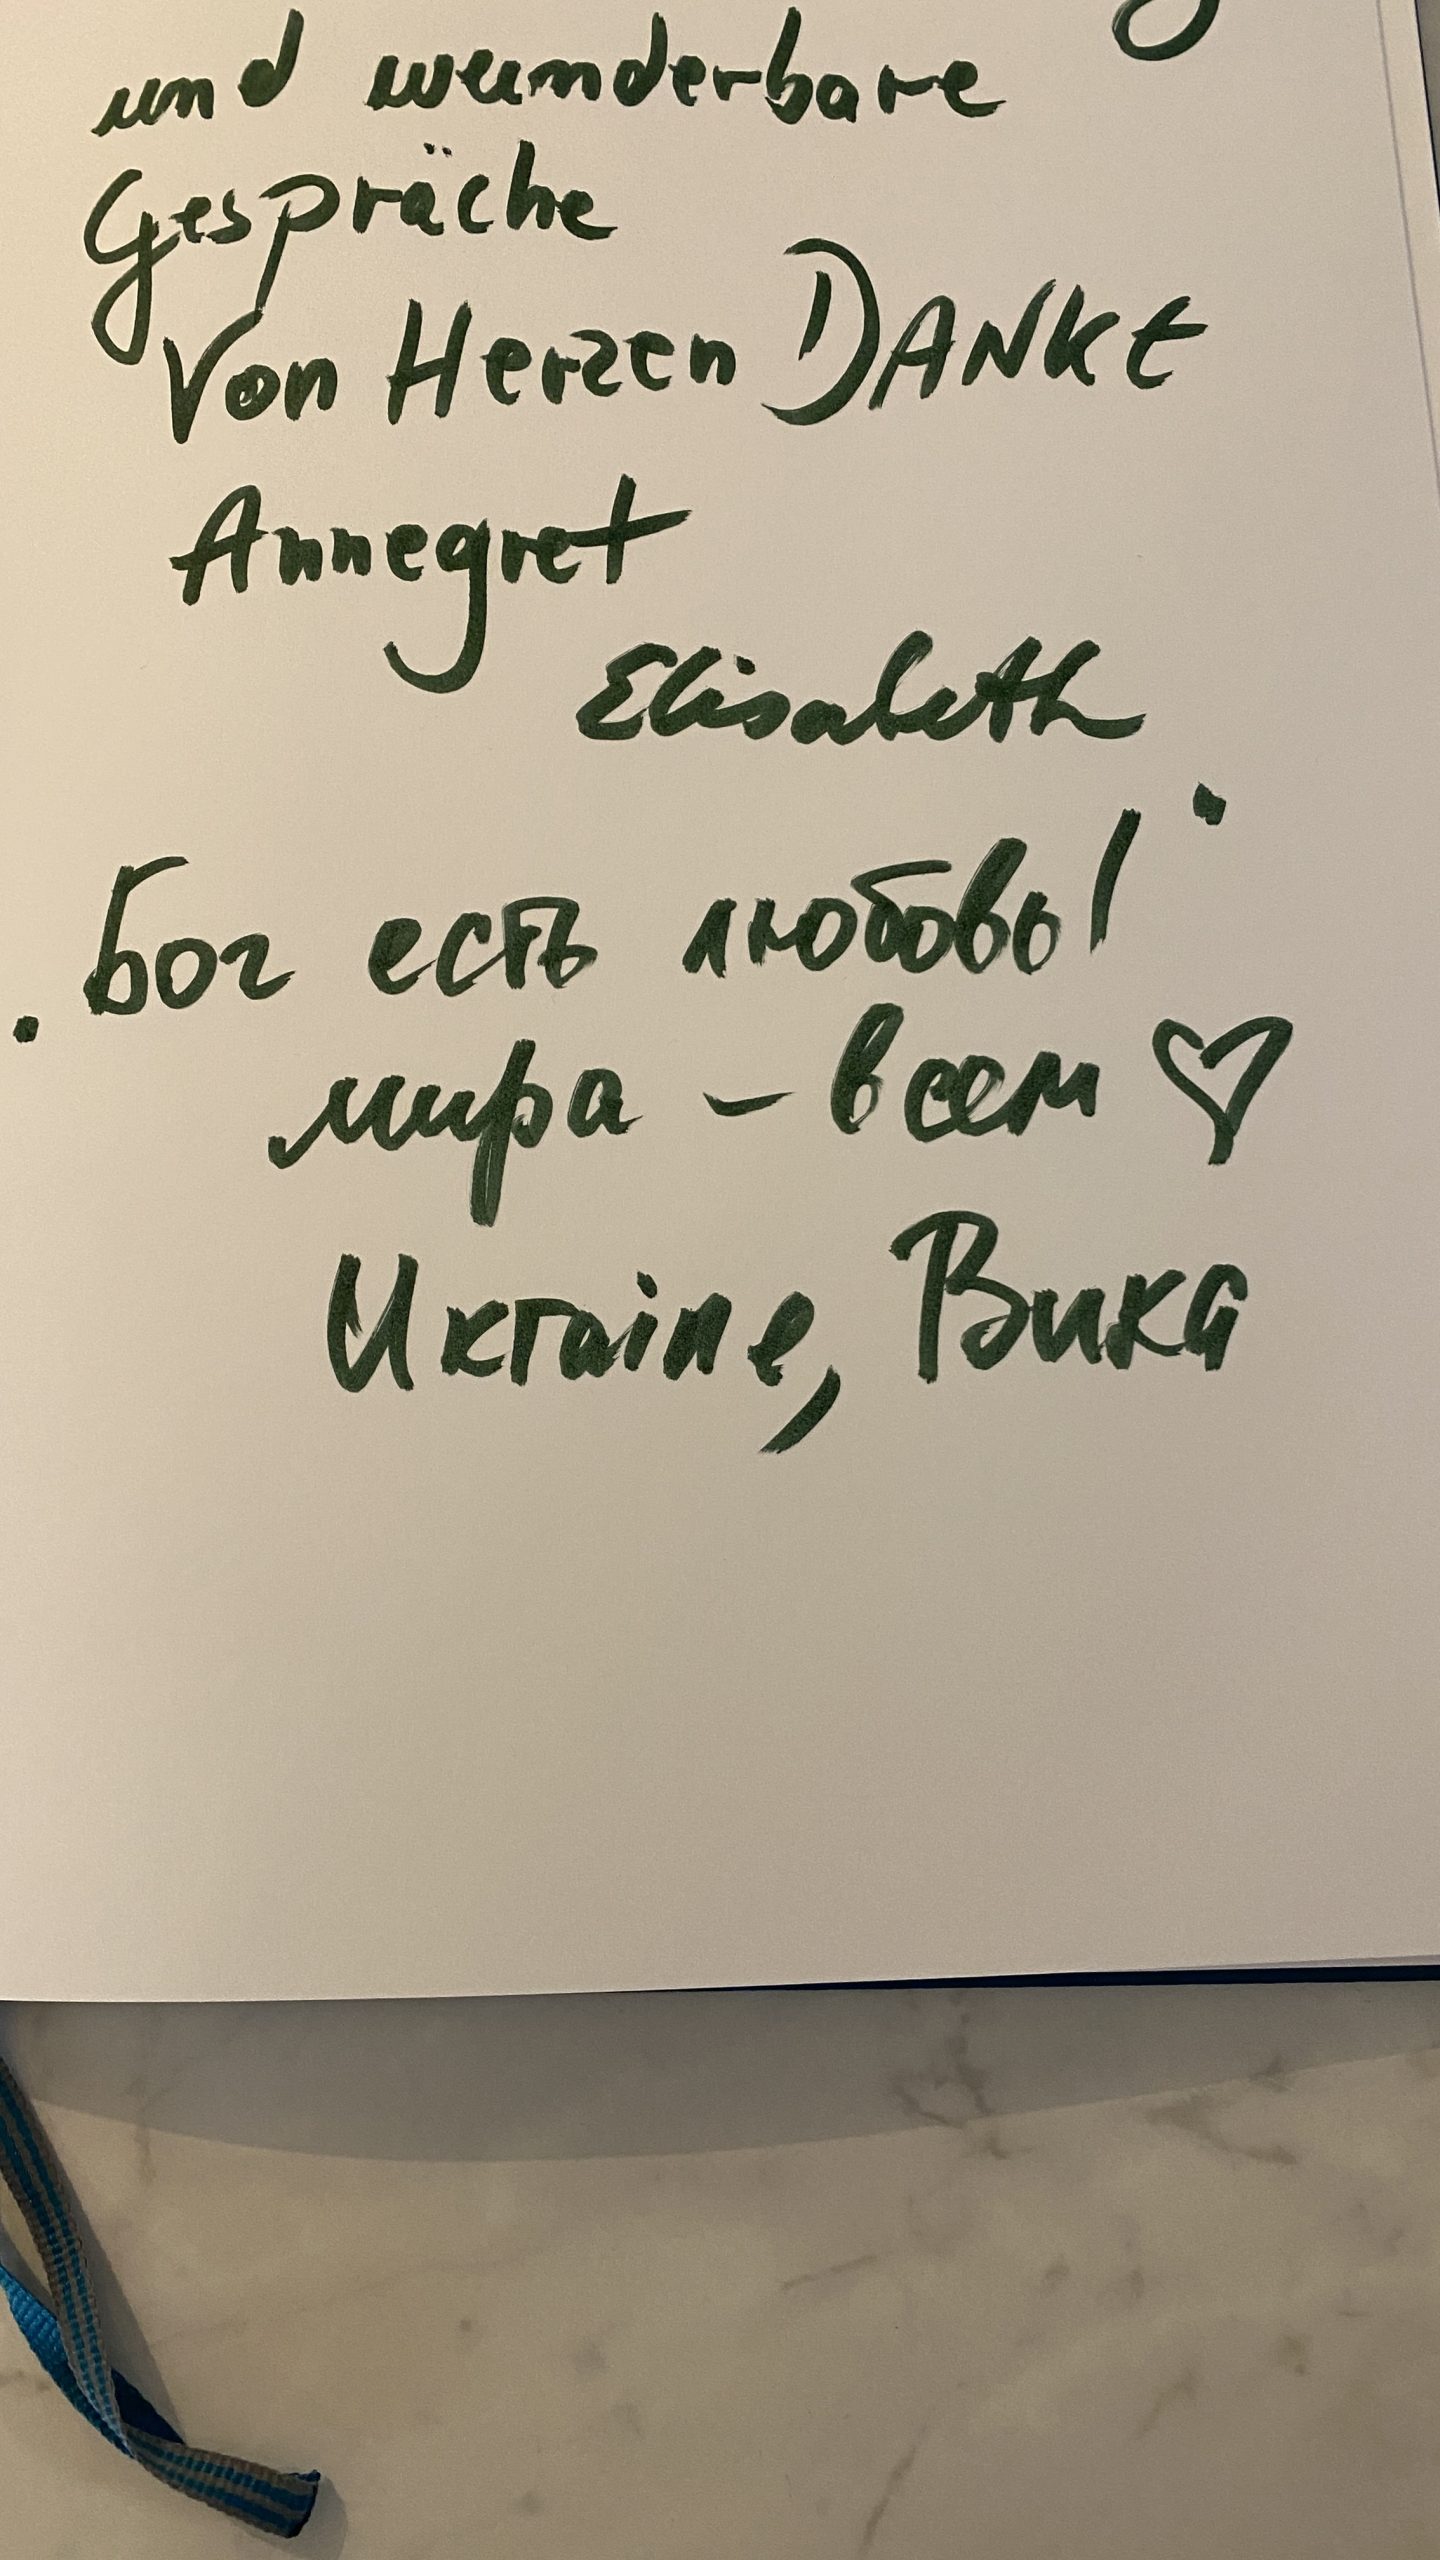 und wunderbare
Gespräche
Von Herzen DANKE
Annegret
Elisabeth
. Бог есть любовь! .
мира – всем ♡
Ukraine, Вика